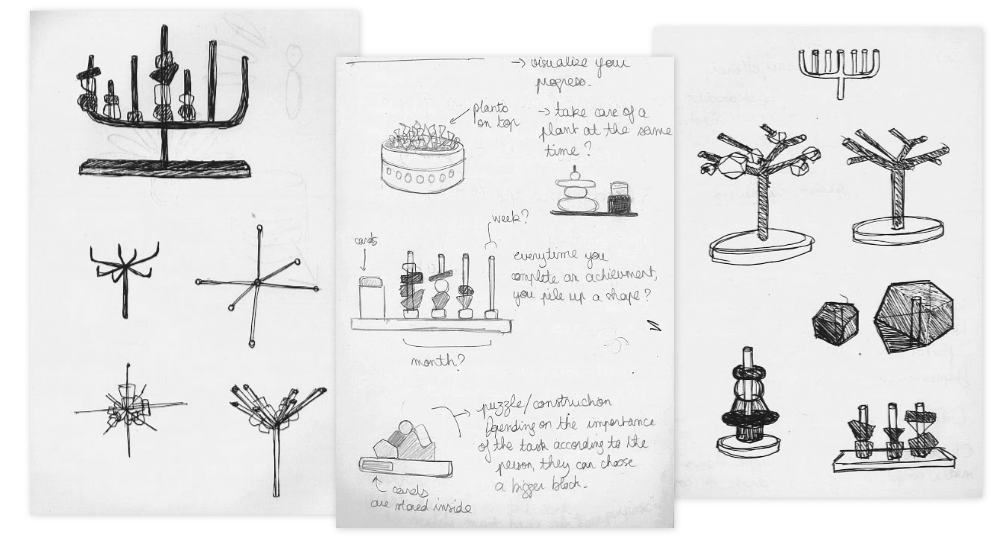 → visualize your
progress.
plants
on top
→ take care of a
plant at the same
time?
week?
cards
everytime you
complete an achievement,
you pile up a shape?
month?
→ puzzle/construction
Depending on the importance
of the task according to the
person, they can choose
a bigger block.
cards
are stored inside